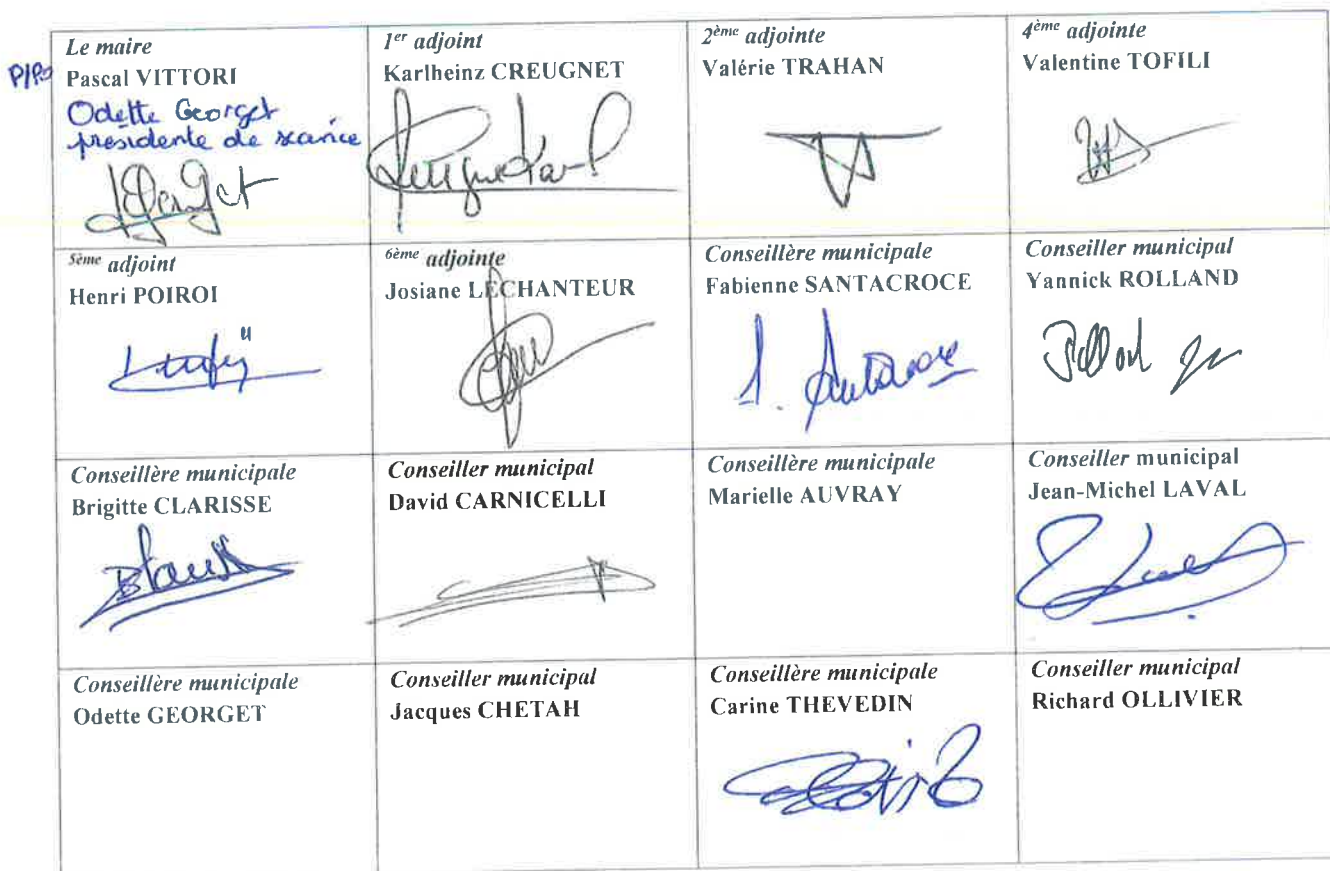 Le maire
P/Po Pascal VITTORI
Odette Georget
présidente de séance
1er adjoint
Karlheinz CREUGNET
2ème adjointe
Valérie TRAHAN
4ème adjointe
Valentine TOFILI
5ème adjoint
Henri POIROI
6ème adjointe
Josiane LECHANTEUR
Conseillère municipale
Fabienne SANTACROCE
Conseiller municipal
Yannick ROLLAND
Conseillère municipale
Brigitte CLARISSE
Conseiller municipal
David CARNICELLI
Conseillère municipale
Marielle AUVRAY
Conseiller municipal
Jean-Michel LAVAL
Conseillère municipale
Odette GEORGET
Conseiller municipal
Jacques CHETAH
Conseillère municipale
Carine THEVEDIN
Conseiller municipal
Richard OLLIVIER